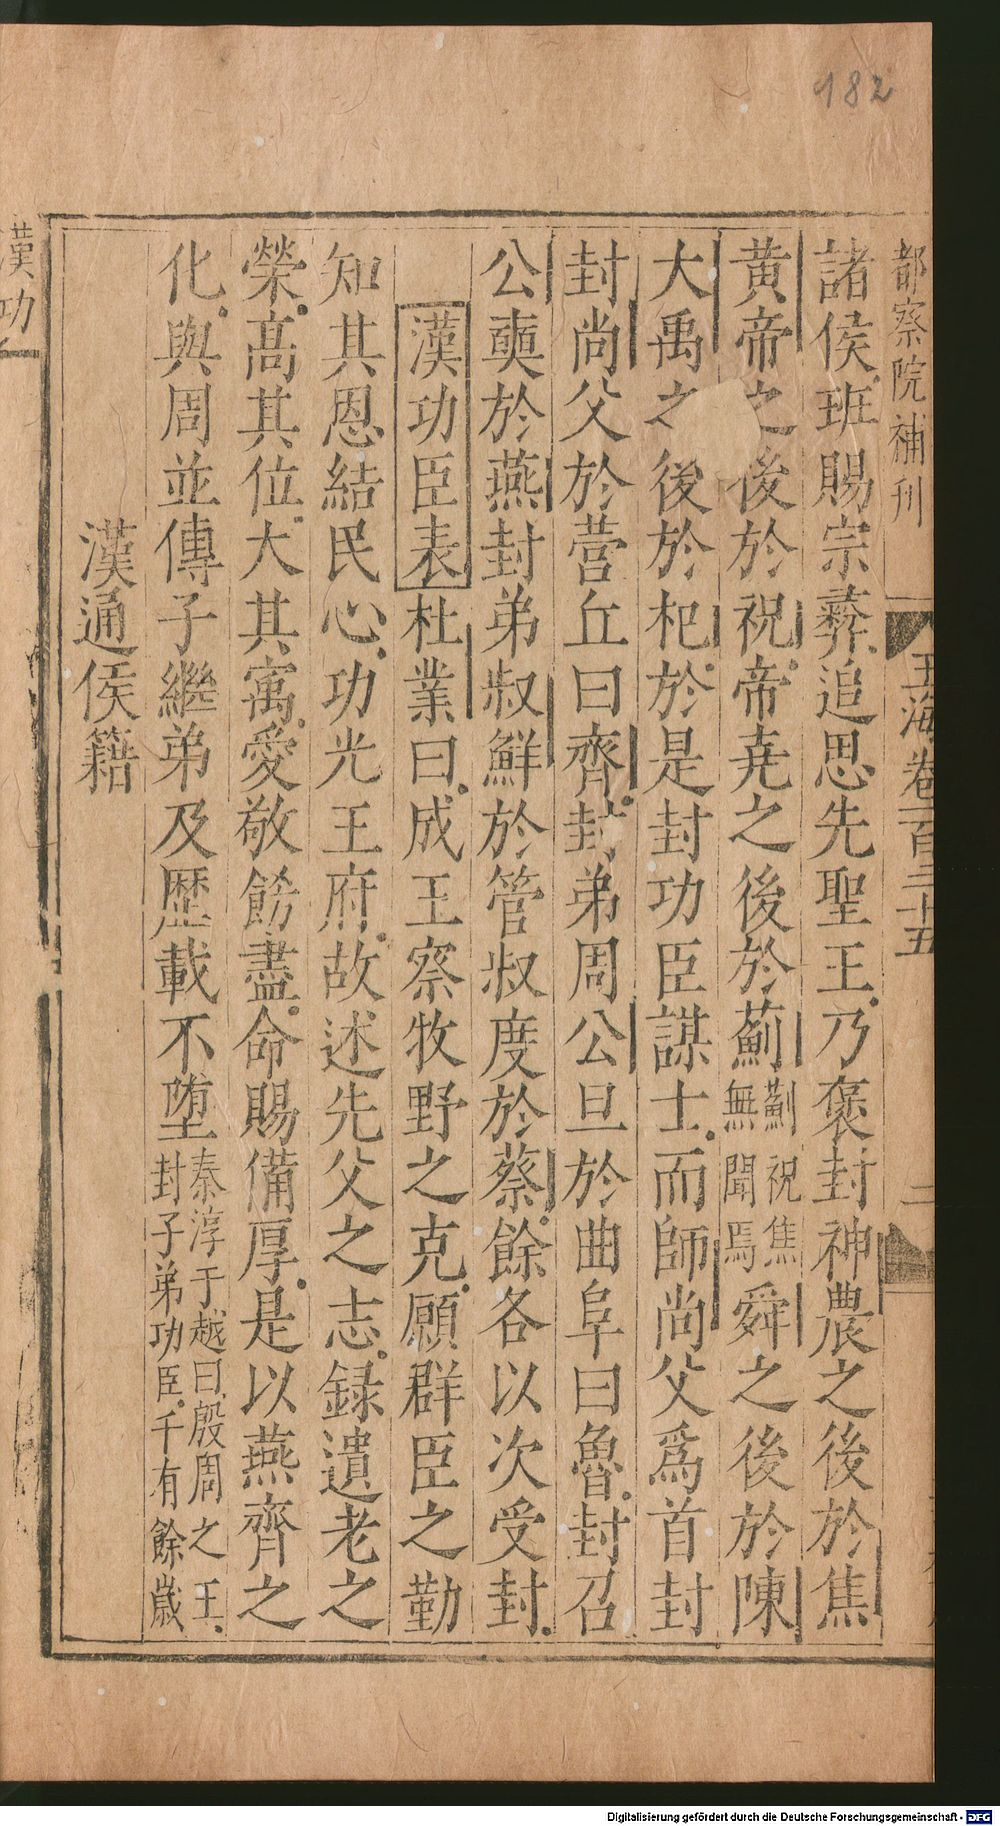 182
都察院補刊
玉海卷一百三十五
二
諸侯班賜宗彝追思先聖王乃褒封神農之後於焦
黄帝之後於祝帝堯之後於薊薊祝焦無聞焉舜之後於陳
大禹之後於杞於是封功臣謀士而師尚父爲首封
封尚父於營丘曰齊封弟周公旦於曲阜曰魯封召
公奭於燕封弟叔鮮於管叔度於蔡餘各以次受封
漢功臣表杜業曰成王察牧野之克願群臣之勤
知其恩結民心功光王府故述先父之志録遺老之
榮高其位大其寓愛敬飭盡命賜備厚是以燕齊之
化與周並傳子繼弟及歴載不墮秦淳于越曰殷周之王封子弟功臣千有餘歲
漢通侯籍
漢功
Digitalisierung gefördert durch die Deutsche Forschungsgemeinschaft - DFG